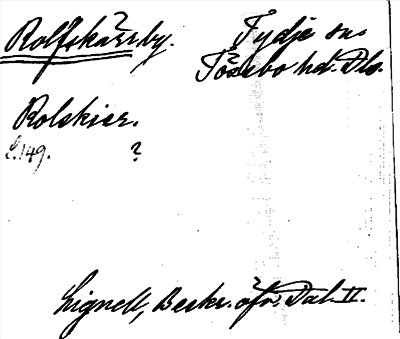 Rolfskärrby. Tydje sn
Tössbo hd. Dls.
Rolskier.
S. 149. ?
Lignell, Beskr. öfv. Dal. II.